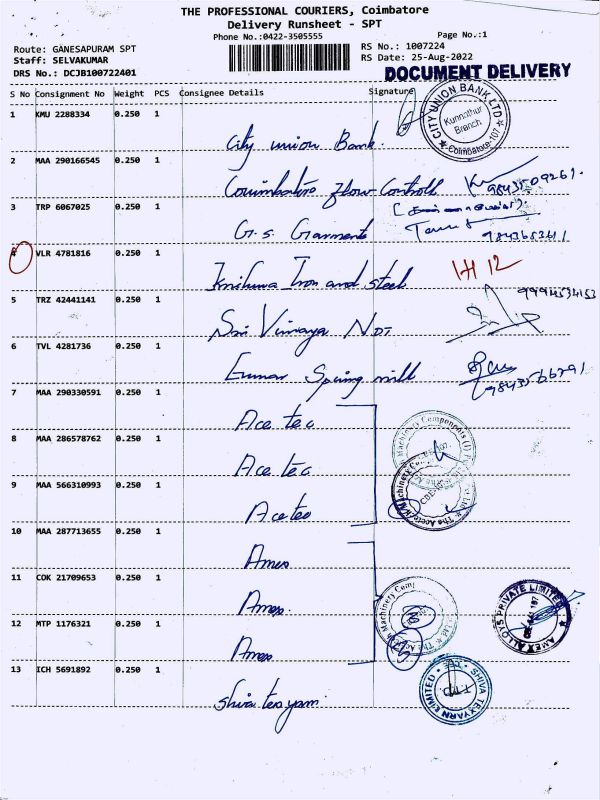 THE PROFESSIONAL COURIERS, Coimbatore
Delivery Runsheet - SPT
Phone No.:0422-3505555 Page No.:1
Route: GANESAPURAM SPT RS No.: 1007224
Staff: SELVAKUMAR RS Date: 25-Aug-2022
DRS No.: DCJB100722401 DOCUMENT DELIVERY
S No Consignment No Weight PCS Consignee Details Signature
1 KMU 2288334 0.250 1
City union Bank.
CITY UNION BANK LTD Kunnathur Branch Coimbatore-107
2 MAA 290166545 0.250 1
Flow Controll
3 TRP 6067025 0.250 1
G.S. Garments
4 VLR 4781816 0.250 1
Iron and steel
5 TRZ 42441141 0.250 1
9994534153
Sri Vinaya NDT
6 TVL 4281736 0.250 1
Spining mill
7 MAA 290330591 0.250 1
Ace tec
8 MAA 286578762 0.250 1
Ace tec
9 MAA 566310993 0.250 1
Ace tec
10 MAA 287713655 0.250 1
Amex
11 COK 21709653 0.250 1
Amex
AMEX ALLOYS PRIVATE LIMITED
12 MTP 1176321 0.250 1
Amex
13 ICH 5691892 0.250 1
Shiva texyarn
SHIVA TEXYARN LIMITED